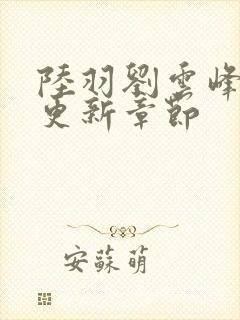 陸羽劉雲峰
更新章節
安蘇萌